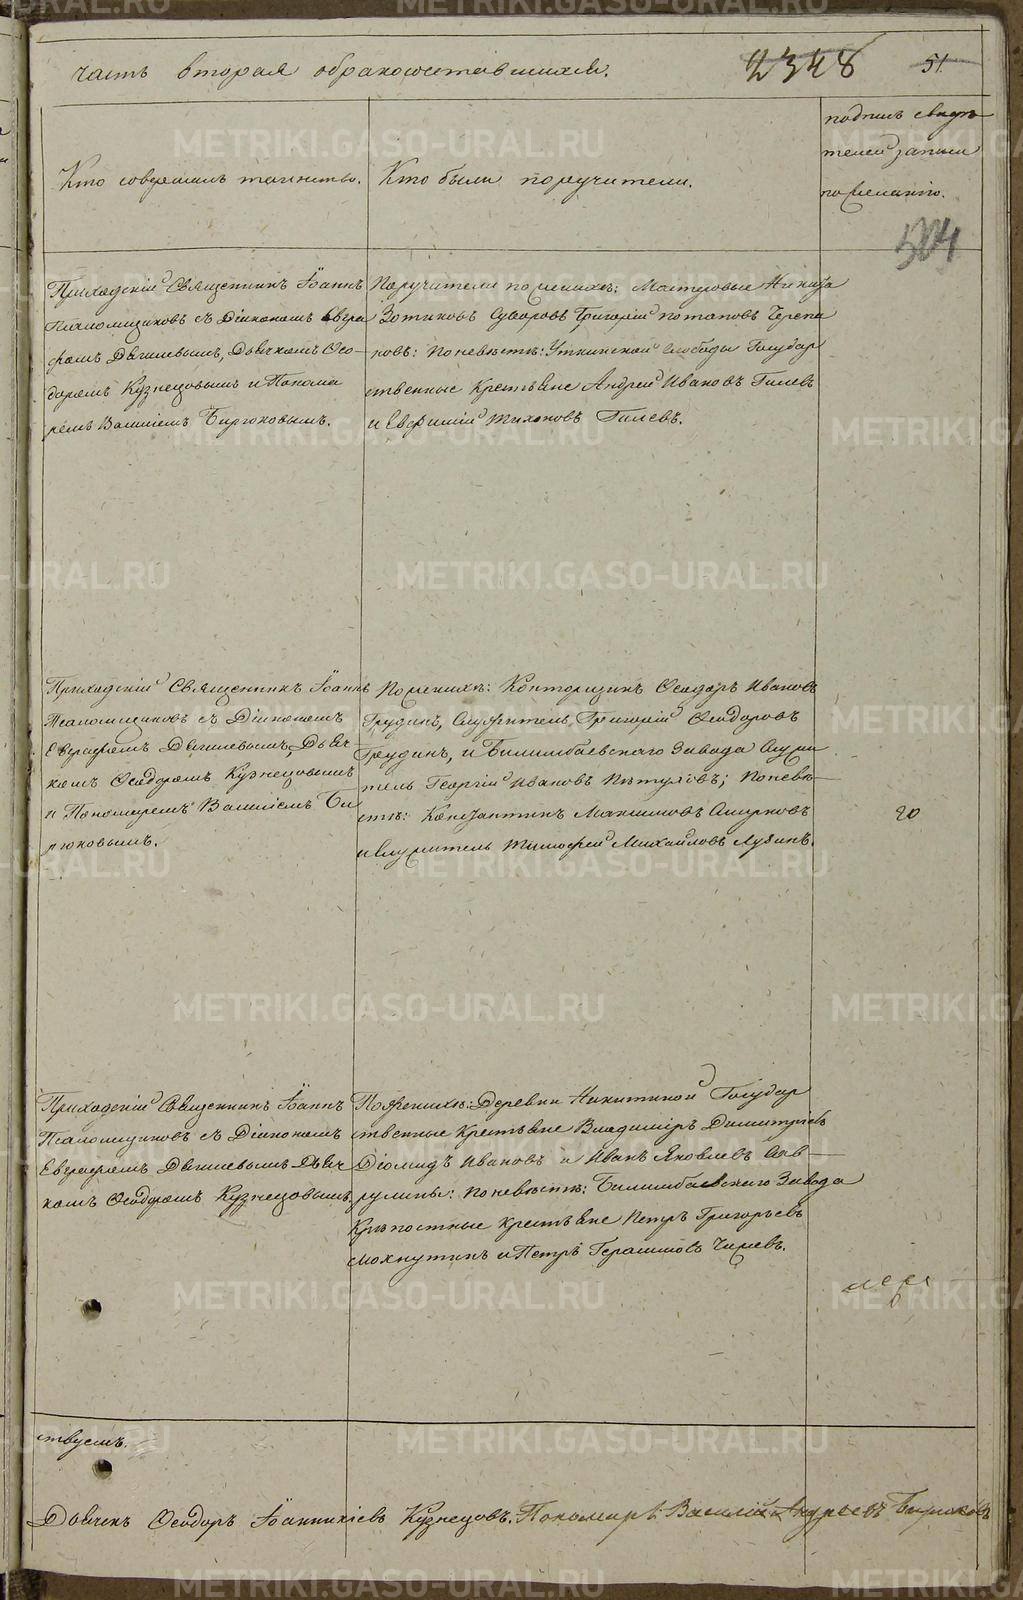 часть вторая о бракосочетавшихся.
2348
51.
Кто совершалъ таинство.
Кто были поручители.
подпись свидѣ
телей записи
по желанію.
504
Приходскій Священникъ Іоаннъ
Псаломщиковъ съ Діакономъ Евгра
фомъ Дягилевымъ, Дьячкомъ Ѳео-
доромъ Кузнецовымъ и Понома
ремъ Василіемъ Бирюковымъ.
Поручители по женихѣ: Мастеровые Никита
Зотиковъ Суворовъ Григорій Потаповъ Черепа
новъ: По невѣстѣ: Уткинской Слободы Государ
ственные Крестьяне Андрей Ивановъ Гилевъ
и Евфимій Тихоновъ Гилевъ.
Приходскій Священникъ Іоаннъ
Псаломщиковъ съ Діакономъ
Евграфомъ Дягилевымъ, Дьяч
комъ Ѳеодоромъ Кузнецовымъ
и Пономаремъ Василіемъ Би
рюковымъ.
По женихѣ: Конторщикъ Ѳеодоръ Ивановъ
Грудинъ, Служитель Григорій Ѳеодоровъ
Грудинъ, и Билимбаевскаго Завода Служи
тель Георгій Ивановъ Пѣтуховъ; По невѣ-
стѣ: Константинъ Максимовъ Смирновъ
и Служитель Тимофей Михайловъ Лузинъ.
20
Приходскій Священникъ Іоаннъ
Псаломщиковъ съ Діакономъ
Евграфомъ Дягилевымъ Дьяч
комъ Ѳеодоромъ Кузнецовымъ
По женихѣ: Деревни Никитиной Государ
ственные Крестьяне Владиміръ Димитріевъ
Діомидъ Ивановъ и Иванъ Яковлевъ Сав-
рулины: По невѣстѣ: Билимбаевскаго Завода
Крѣпостные крестьяне Петръ Григорьевъ
Мохнуткинъ и Петръ Герасимовъ Чижевъ.
ствуемъ.
Дьячекъ Ѳеодоръ Іоанникіевъ Кузнецовъ. Пономарь Василій Андреевъ Бирюковъ
METRIKI.GASO-URAL.RU